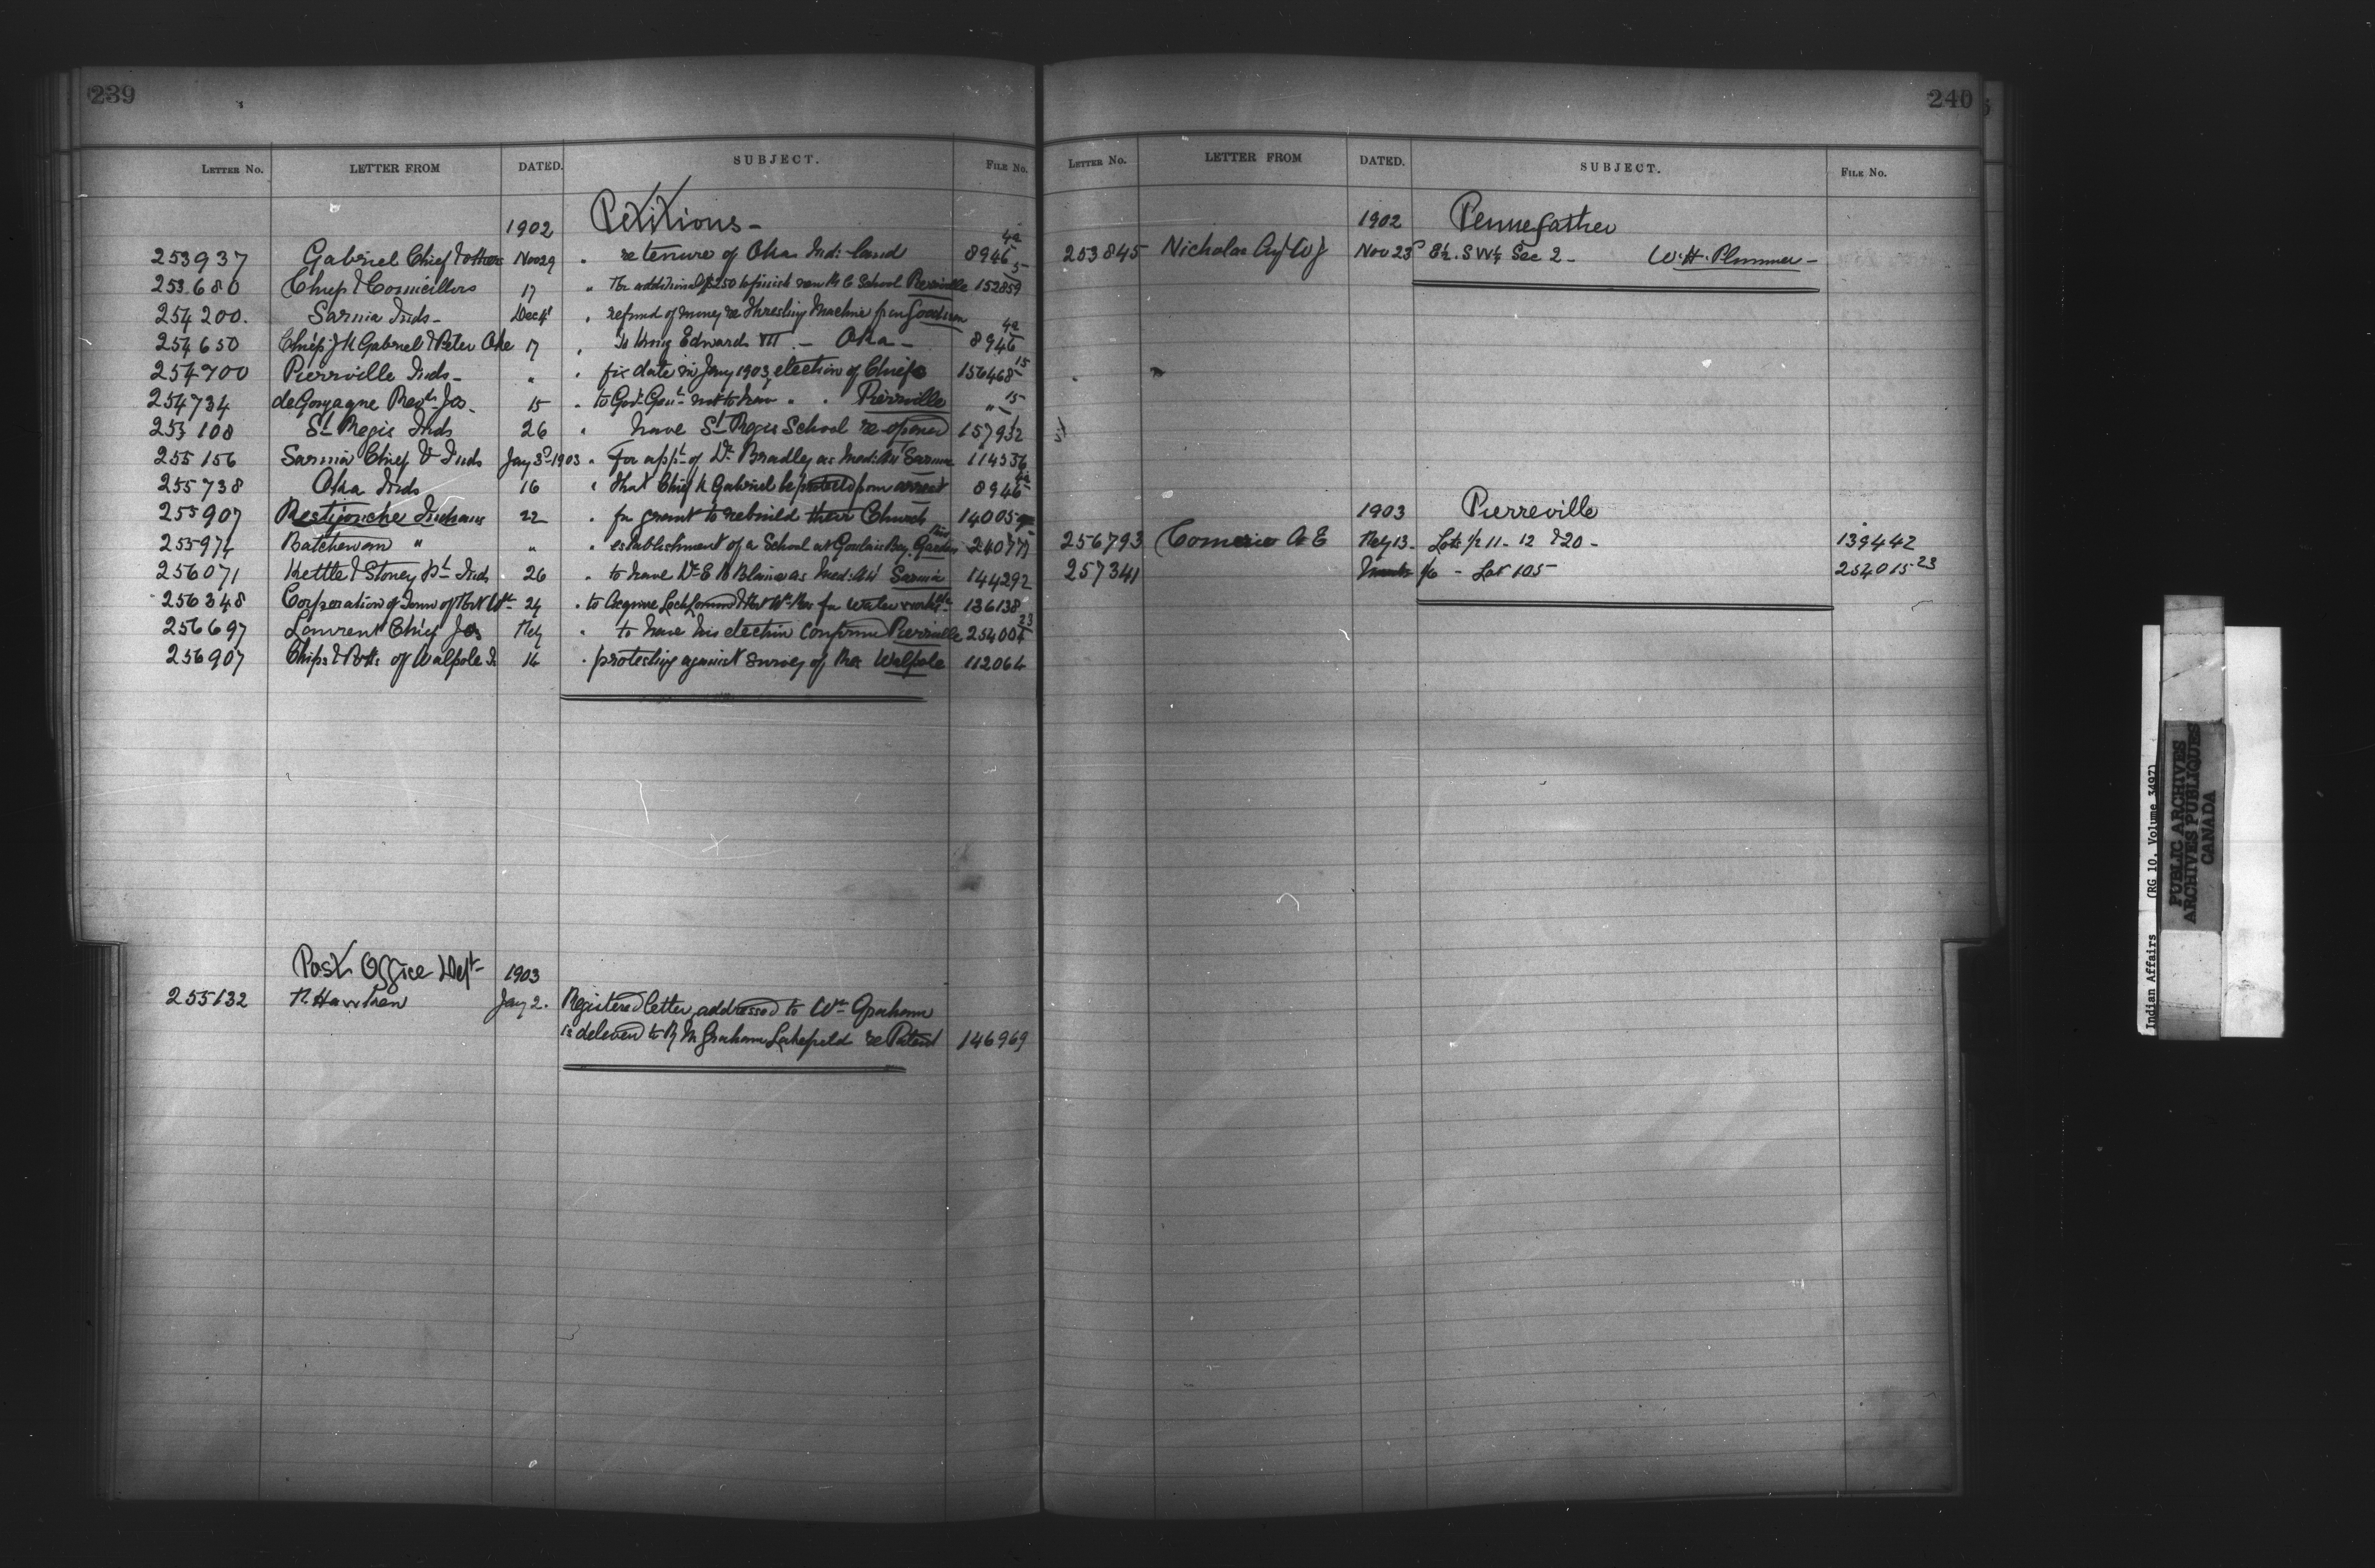 239
LETTER NO. LETTER FROM DATED. SUBJECT. FILE No.
1902 Petitions -
253937 Gabriel Chief & others Nov 29 " re tenure of Oka Ind: land 8946 4a
253680 Chief & Councillors 17 " For additional $250 to finish new R C School Pierreville 152859 5
254200. Sarnia Inds - Dec 4 " refund of money re Threshing Machine from Goodison
254650 Chiefs J K Gabriel & Peter Oke 17 " To King Edward VII - Oka - 8946 4a
254700 Pierrville Inds - " " fix date in Jany 1903 election of Chiefs 156468 15
254734 de Gonzague Jos. 15 " to Gov. Genl. not to have " " Pierrville " 15
255108 St Regis Inds 26 " have St Regis School re-opened 157932 1
255156 Sarnia Chief & Inds Jany 3d 1903 " For appt of Dr Bradley as Med: Att Sarnia 114536
255738 Oka Inds 16 " that Chief K Gabriel be protected from arrest 8946 4a
255907 Restigouche Indians 22 " for grant to rebuild their Church 14005
255974 Batchewan " " " establishment of a School at Goulais Bay. Garden River 24077
256071 Kettle & Stoney Pt Inds 26 " to have Dr E B Blain as Med: Att Sarnia 144292
256348 Corporation of Town of Port Wm 24 " to Acquire Loch Lomond for water works 136138
256697 Laurent Chief Jos Feby " to have his election Confirmed Pierrville 254004 23
256907 Chiefs & of Walpole Is 14 " protesting against survey of Res Walpole 112064
Post Office Dept 1903
255132 Jany 2. Registered letter addressed to Wm Graham
is delevered to R M Graham Lakefield re Patent 146969
240
LETTER NO. LETTER FROM DATED. SUBJECT. FILE No.
1902 Pennefather
253845 Nicholas W J Nov 23 E½. S W¼ Sec 2 - W. H. Plummer -
1903 Pierreville
256793 A E Feby 13 - Lots ½ 11 - 12 & 20 - 139442
257341 - Lot 105 254015 23
Indian Affairs (RG 10, Volume 3497)
PUBLIC ARCHIVES
ARCHIVES PUBLIQUES
CANADA